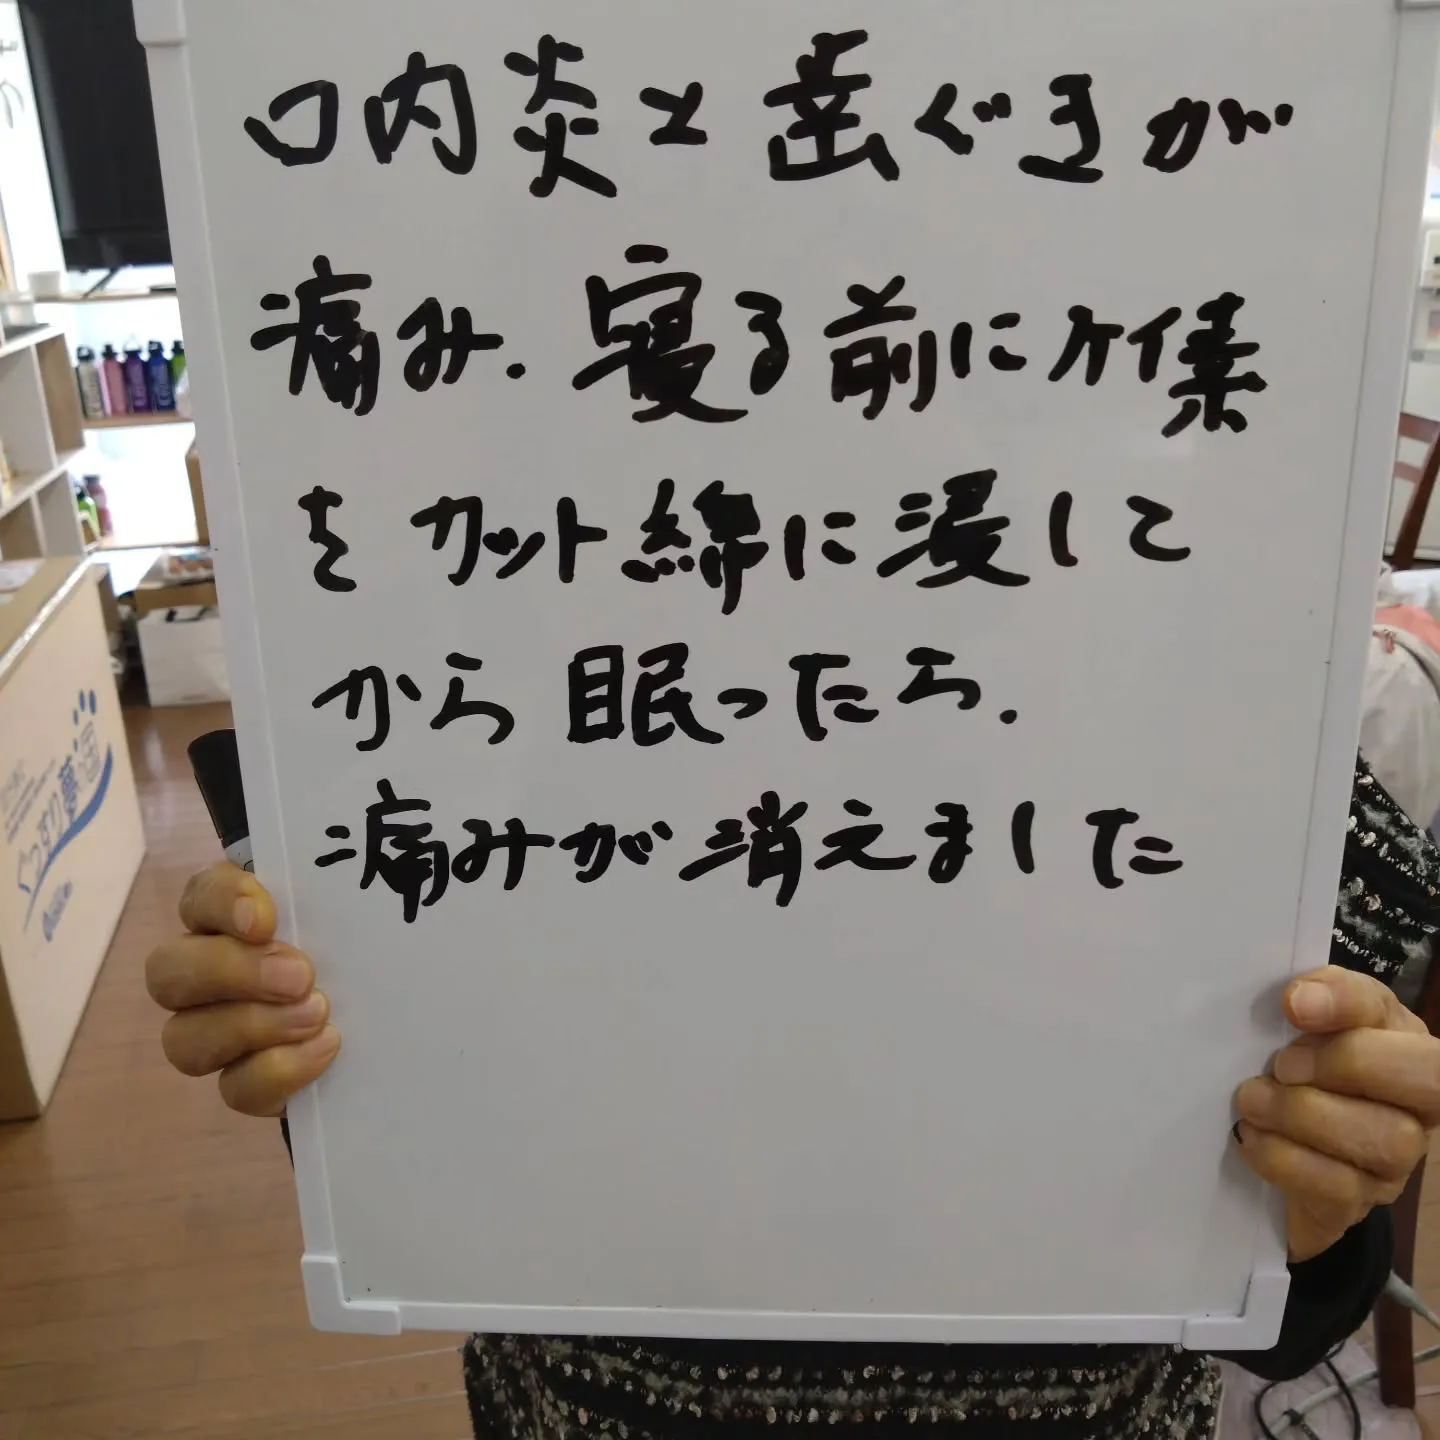 口内炎と歯ぐきが
痛み.寝る前にケイ素
をカット綿に浸して
から眠ったら.
痛みが消えました
ぐっすり夢